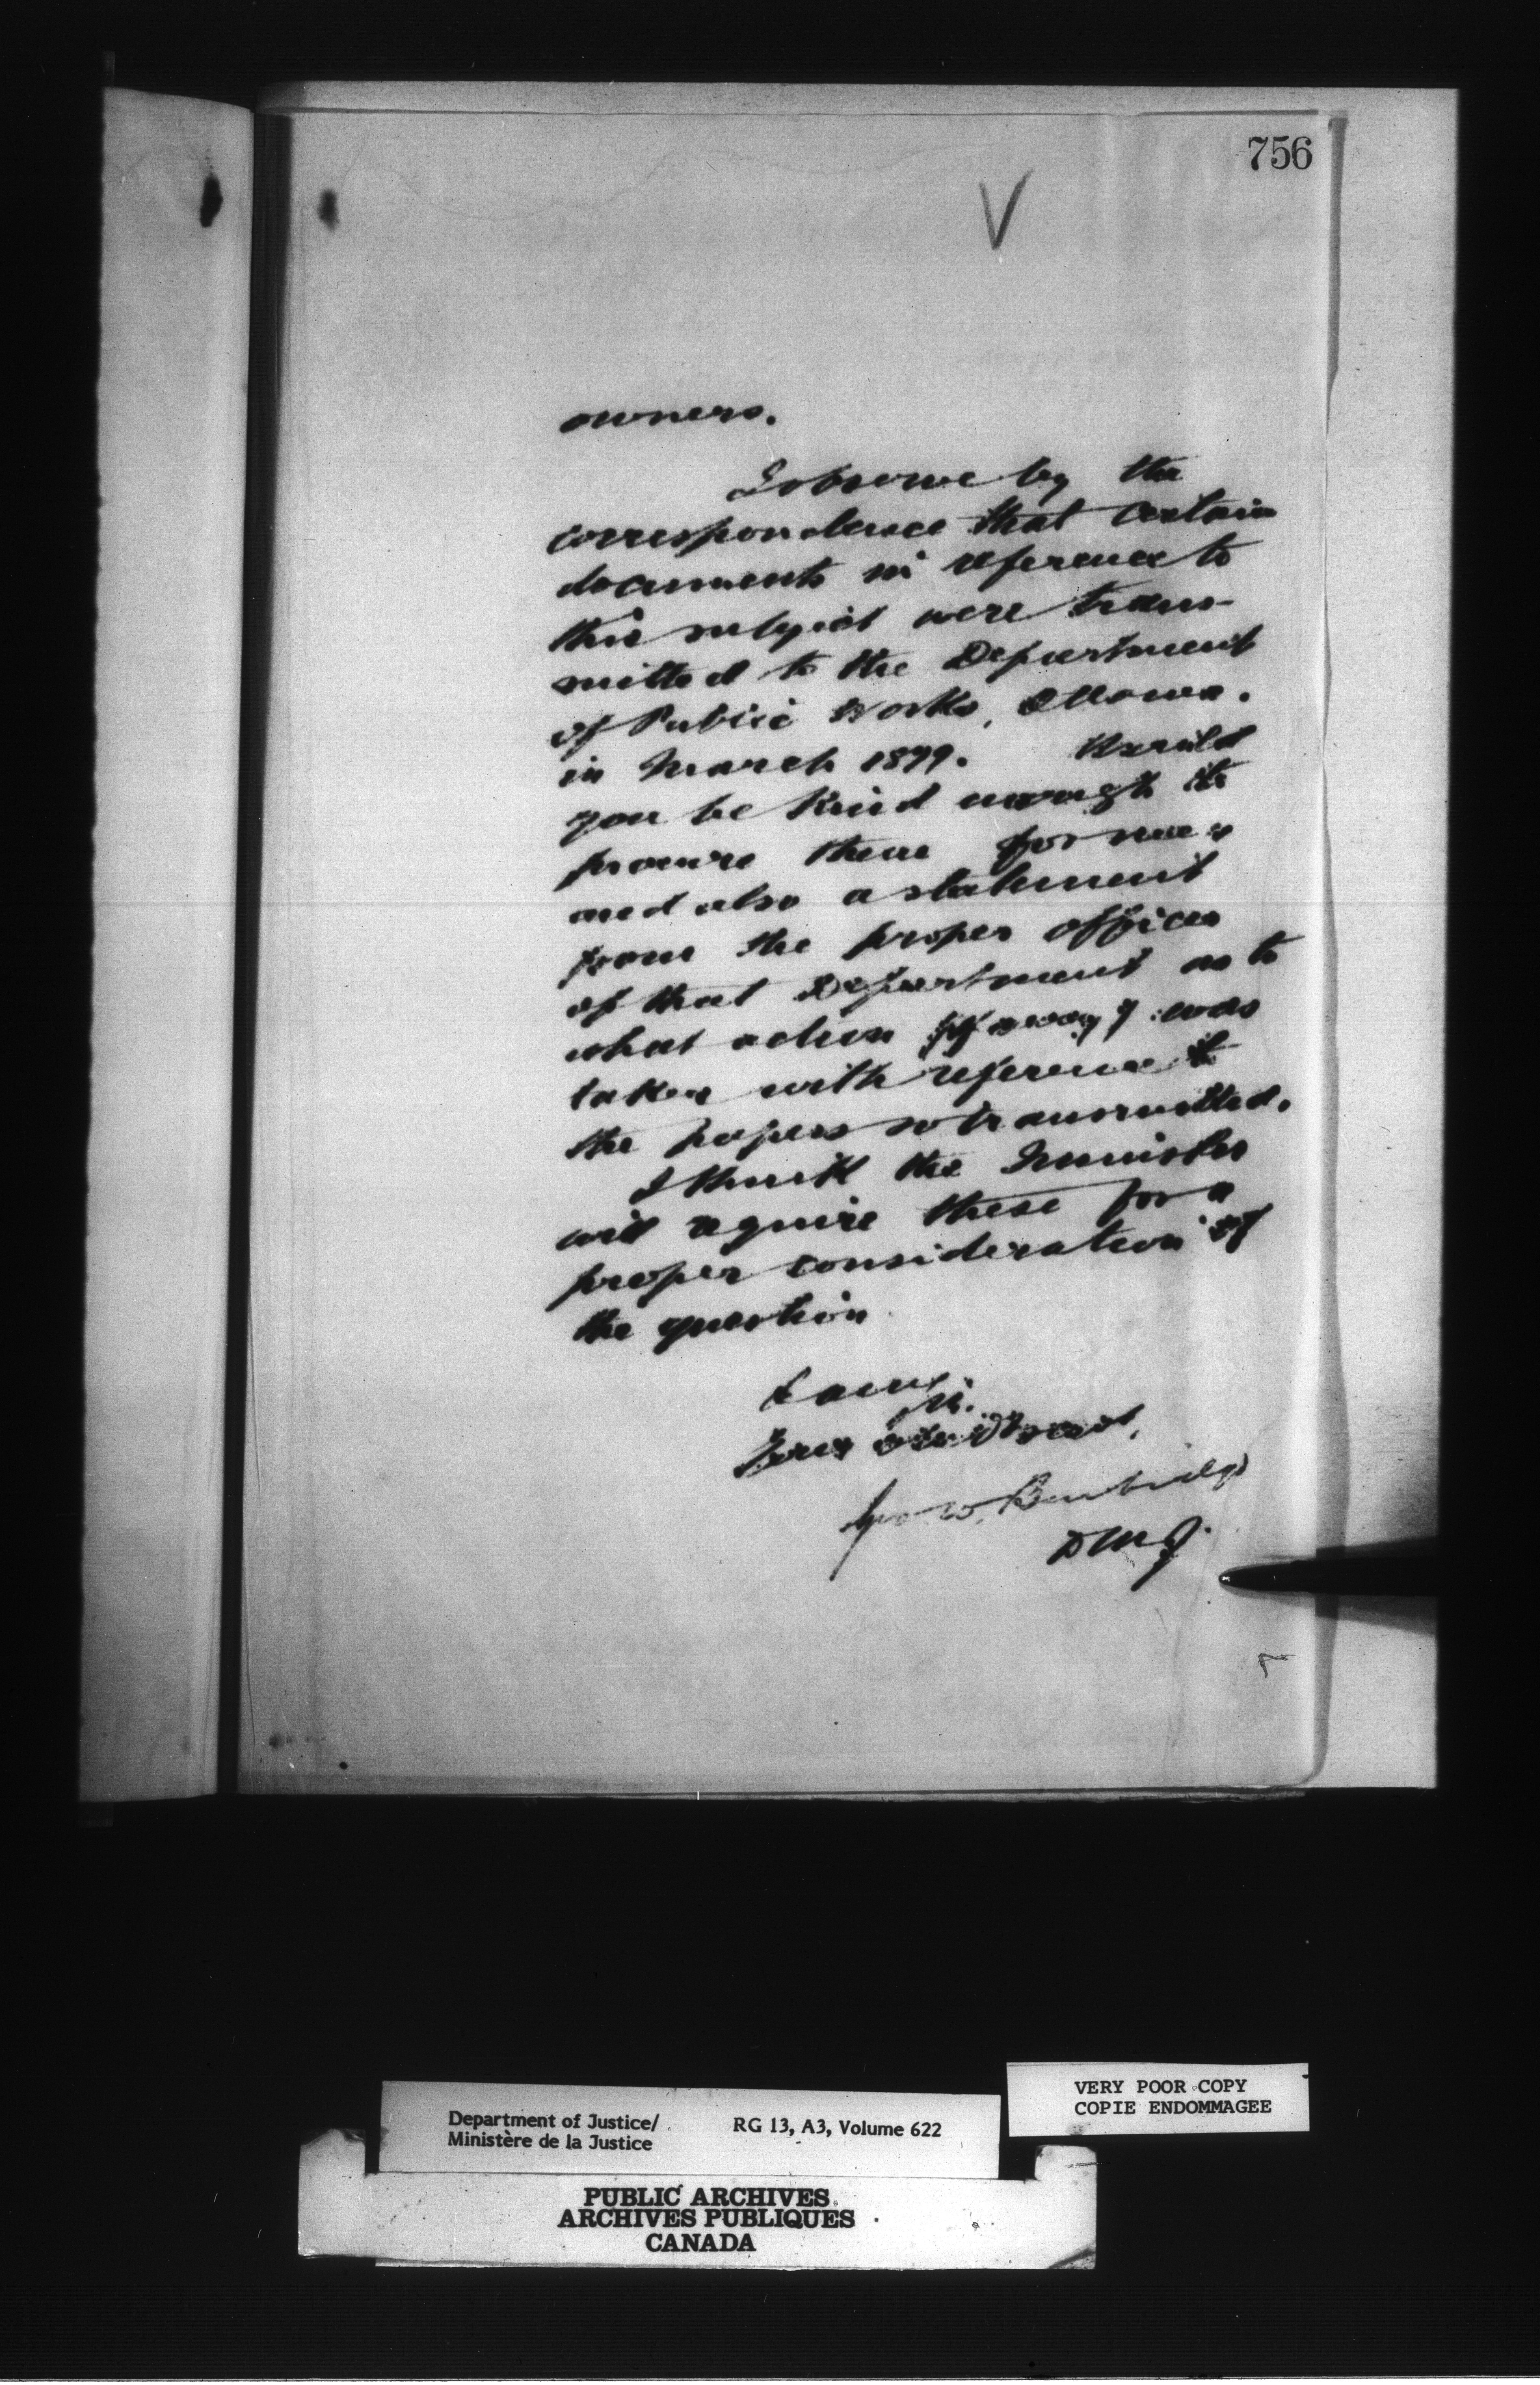 756
V
owners.
I observe by the
correspondence that certain
documents in reference to
this subject were trans-
mitted to the Department
of Public Works, Ottawa.
in March 1879. Would
you be kind enough to
procure these for me,
and also a statement
from the proper officer
of that Department as to
what action if any was
taken with reference to
the papers so transmitted.
I think the Minister
will require these for a
proper consideration of
the question
I am
Sir.
Your obedt servant,
Geo. W. Burbidge
D M J.
Department of Justice/
Ministère de la Justice
RG 13, A3, Volume 622
VERY POOR COPY
COPIE ENDOMMAGEE
PUBLIC ARCHIVES
ARCHIVES PUBLIQUES
CANADA